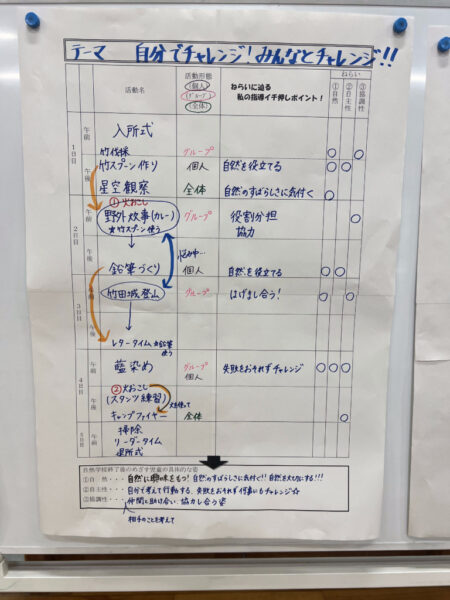 テーマ 自分でチャレンジ!みんなとチャレンジ!!
活動名
活動形態
(個人)
(グループ)
(全体)
ねらいに迫る
私の指導イチ押しポイント!
ねらい
①自然
②自主性
③協調性
1日目
午前
入所式
午後
竹伐採 グループ ○ ○
竹スプーン作り 個人 自然を役立てる ○ ○
星空観察 全体 自然のすばらしさに気付く ○
2日目
午前
①火おこし
野外炊事(カレー) グループ 役割分担 ○
★竹スプーン使う 協力
午後
悩み中…
鉛筆づくり 個人 自然を役立てる ○ ○
3日目
竹田城登山 グループ はげまし合う! ○ ○
午後
レタータイム ★鉛筆使う
4日目
午前
藍染め グループ 失敗をおそれずチャレンジ ○ ○ ○
個人
午後
②火おこし
(スタンツ練習) 火を使って
キャンプファイヤー 全体 ○
5日目
午前
掃除
リーダータイム
退所式
自然学校終了後のめざす児童の具体的な姿
①自然・・・自然に興味をもつ!自然のすばらしさに気付く!!自然を大切にする!!!
②自主性・・・自分で考えて行動する、失敗をおそれず何事にもチャレンジ☆
③協調性・・・仲間と助け合い、協力し合う姿
相手のことを考えて